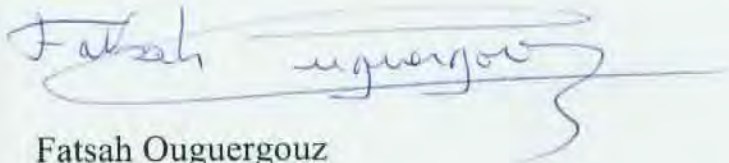 Fatsah Ouguergouz
Fatsah Ouguergouz